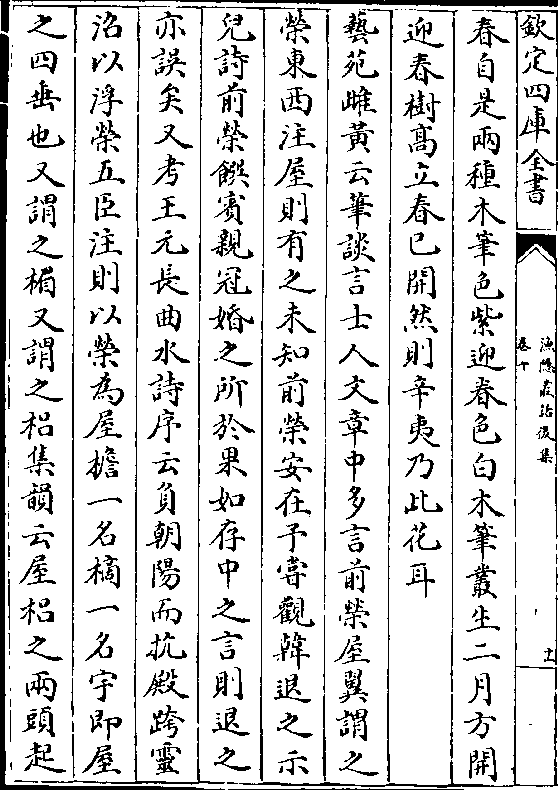 欽定四庫全書
漁隱叢話後集
卷十
十一
春自是兩種木筆色紫迎春色白木筆叢生二月方開
迎春樹髙立春已開然則辛夷乃此花耳
藝苑雌黄云筆談言士人文章中多言前榮屋翼謂之
榮東西注屋則有之未知前榮安在予嘗觀韓退之示
兒詩前榮饌賓親冠婚之所於果如存中之言則退之
亦誤矣又考王元長曲水詩序云負朝陽而抗殿跨靈
沼以浮榮五臣注則以榮為屋擔一名樀一名宇即屋
之四垂也又謂之楣又謂之梠集韻云屋梠之兩頭起